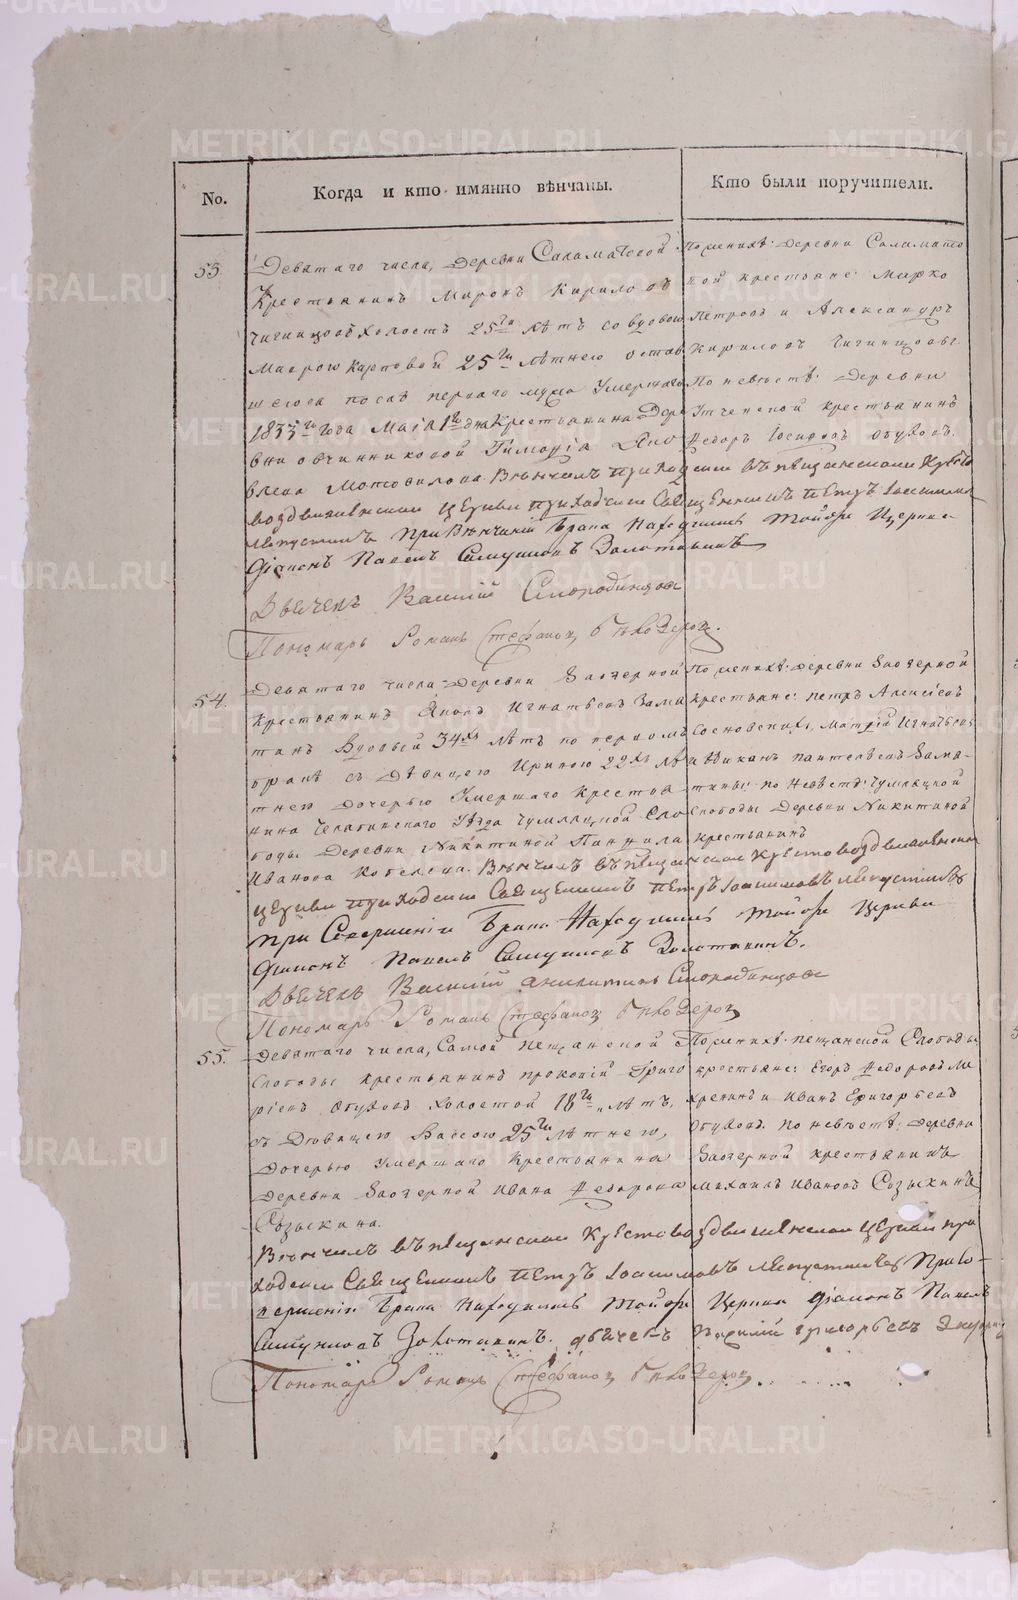 No.
Когда и кто имянно вѣнчаны.
Кто были поручители.
53.
Девятаго числа, деревни Саламатовой
Крестьянинъ Миронъ Кириловъ
Чигинцовъ холостъ 25ти лѣтъ со вдовою
Маврою Карповой 25ти лѣтнею остав
шеюся после перваго мужа умершаго
1833го года Маія 12 дня Крестьянина Дере
вни Овчинниковой Тимофѣя Яко
влева Мотовилова. Вѣнчалъ
воздвиженской церкви приходской Священникъ Петръ Іоакимовъ
при Вѣнчаніи Брака Находились тойже Церкви
Діаконъ Павелъ Самуиловъ Золотавинъ
Дьячекъ Василій Смородинцовъ
Пономарь Романъ Стефановъ
По женихѣ: деревни Саламато
вой крестьяне: Марко
Петровъ и Александръ
Кириловъ Чигинцовы.
По невѣстѣ: Деревни
крестьянинъ
Федоръ Іосифовъ Обуховъ.
54.
Девятаго числа деревни Заозерной
Крестьянинъ Яковъ Игнатьевъ Зама
тинъ Вдовый 34хъ лѣтъ по первомъ
бракѣ съ Дѣвицею Ириною 22хъ лѣ
тнею дочерью Умершаго Крестья
нина Челябинскаго Уѣзда Чумляцкой Сло
боды Деревни Никитиной Панфила
Иванова Котелева. Вѣнчалъ въ пещанской Крестовоздвиженской
церкви приходской Священникъ Петръ Іоакимовъ
при Совершеніи Брака Находились тойже Церкви
Діаконъ Павелъ Самуиловъ Золотавинъ.
Дьячекъ Василій Смородинцовъ
Пономарь Романъ Стефановъ
По женихѣ: деревни Заозерной
крестьяне: Петръ Алексѣевъ
Сосновскихъ, Матвѣй Игнатьевъ
и Викулъ Пантелѣевъ Зама-
тины: по Невѣстѣ: Чумляцкой
слободы Деревни Никитиной
крестьянинъ
55.
Девятаго числа, Самой пещанской
Слободы крестьянинъ Прокопій Григо
рьевъ Обуховъ холостой 18ти лѣтъ,
съ Дѣвицею Вассою 25ти лѣтнею,
Дочерью умершаго Крестьянина
деревни Заозерной Ивана Федорова
Созыкина.
Вѣнчалъ въ пещанской Крестовоздвиженской церкви при
ходской Священникъ Петръ Іоакимовъ При Со-
вершеніи Брака Находились тойже Церкви діаконъ Павелъ
Самуиловъ Золотавинъ. дьячекъ григорьевъ
Пономарь Романъ Стефановъ
По женихѣ: пещанской Слободы
крестьяне: Егоръ Федоровъ
и Иванъ Григорьевъ
Обуховъ. по невѣстѣ: деревни
Заозерной крестьянинъ
Михаилъ Ивановъ Созыкинъ